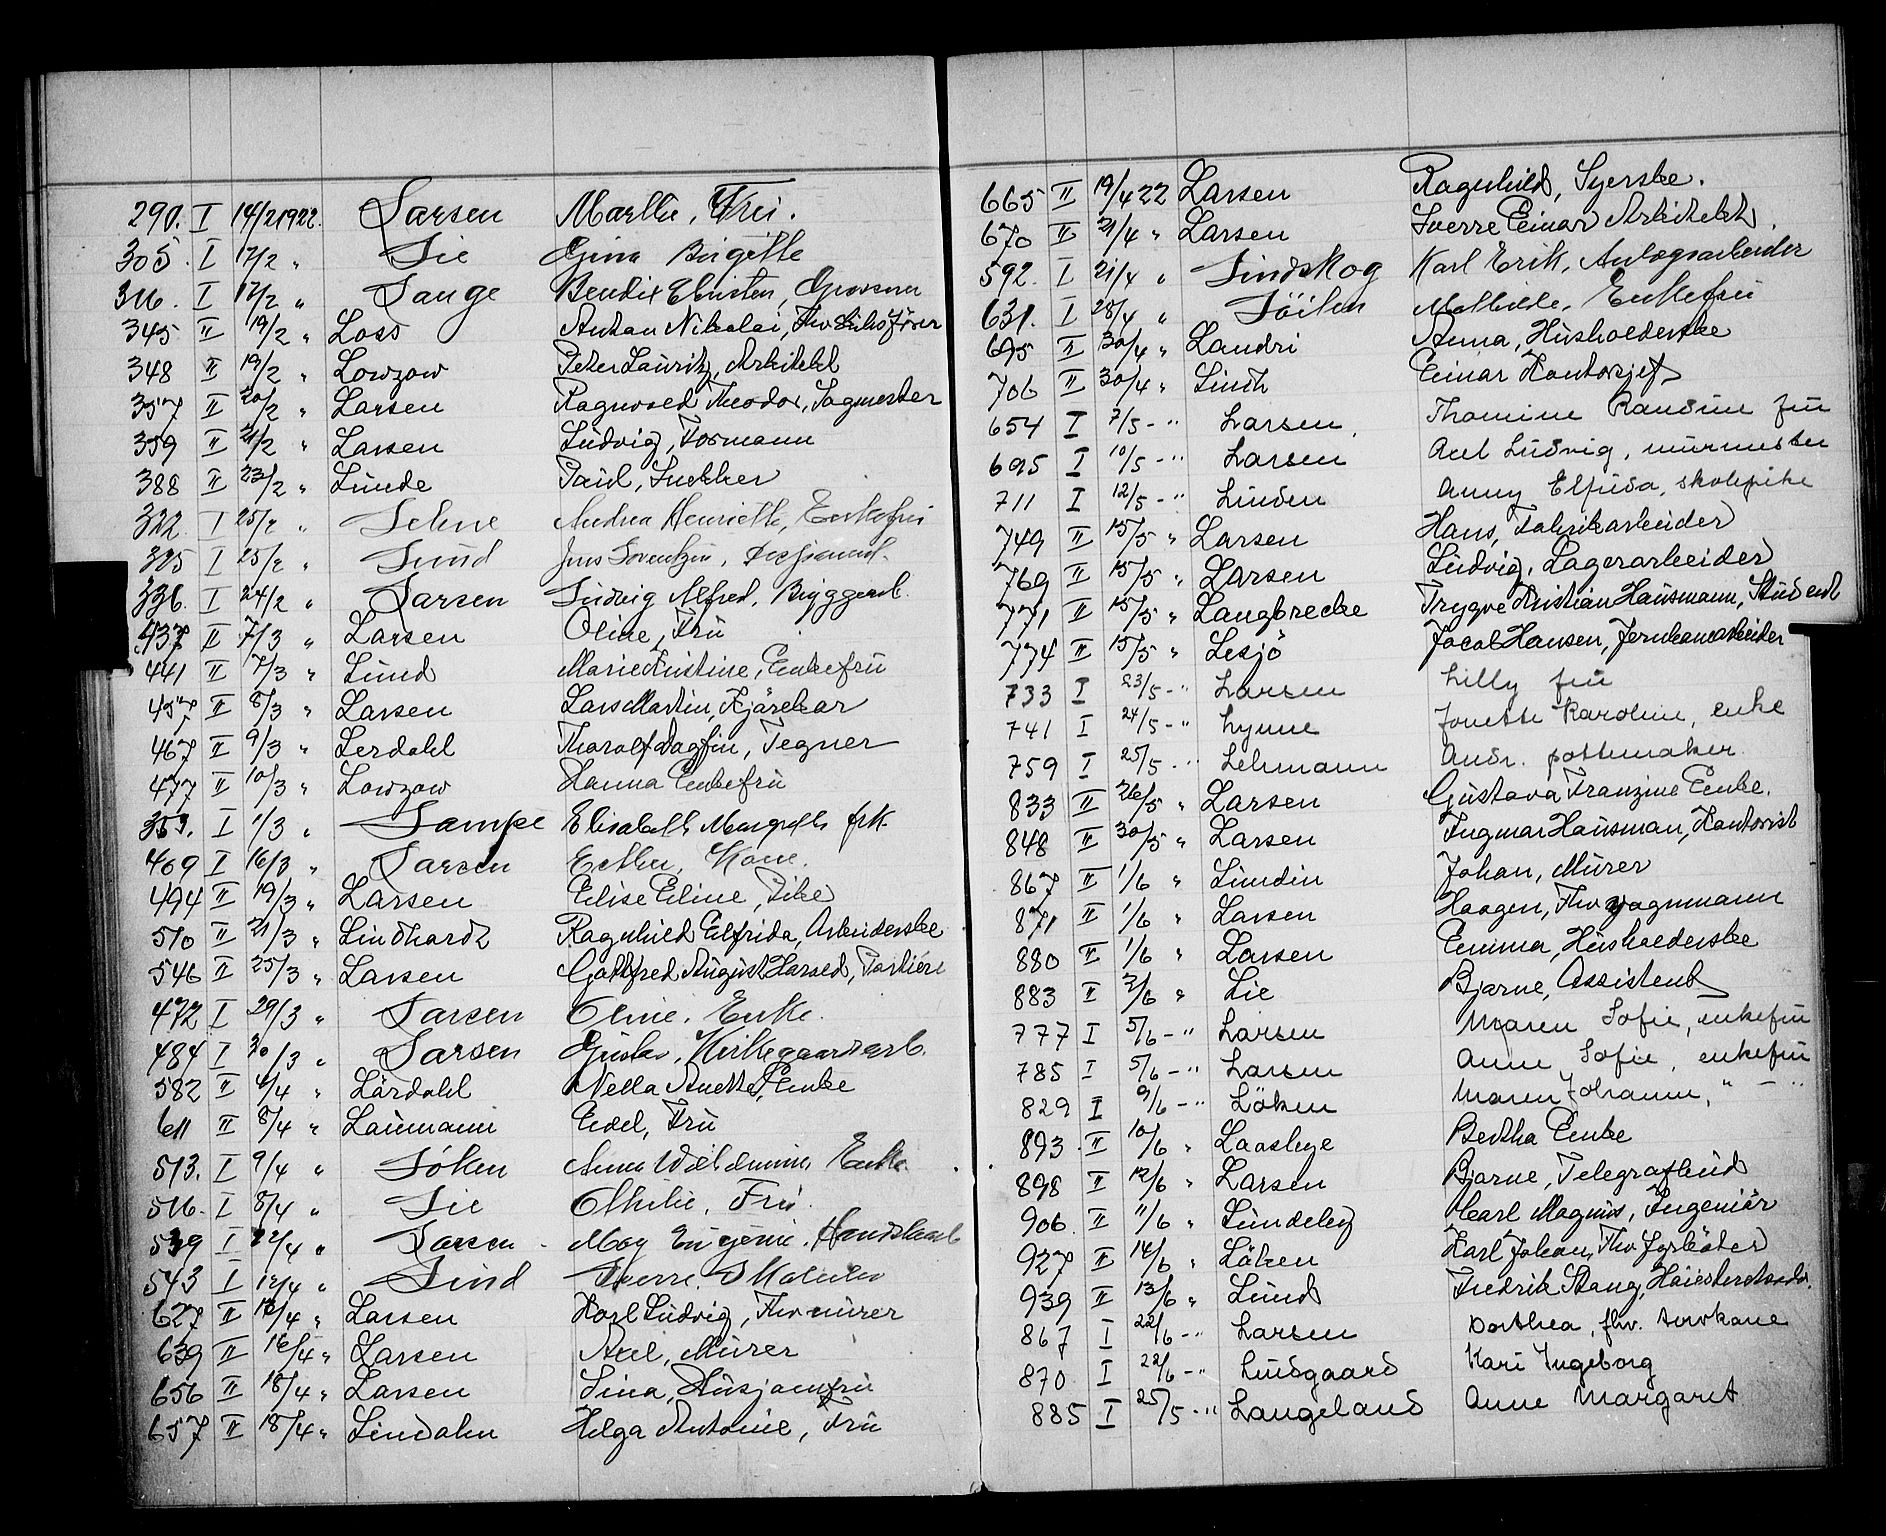 290. I 14/2 1922. Larsen Marthe, Fru.
305. I 17/2 " Lie Gina Birgitte
316. I 17/2 " Lange Bendix Ebsisten, Grosserer
345 II 19/2 " Loss Anton Nikolai, Fhv Skibsfører
348 II 19/2 " Lowzow Peter Lauritz, Arkitekt
357 II 20/2 " Larsen Ragnvald Theodor, Sagmester
359 II 21/2 " Larsen Ludvig, Formann
388 II 23/2 " Lunde Paul, Snekker
322. I 25/2 " Lehne Andrea Henriette, Enkefru
325 I 25/2 " Lund Jens Lorentzen,
336. I 24/2 " Larsen Ludvig Alfred, Bryggearb.
437 II 7/3 " Larsen Oline, Fru
441 II 7/3 " Lund Marie Kristine, Enkefru
457 II 8/3 " Larsen Lars Martin, Kjørekar
467 II 9/3 " Lerdahl Tharalf Dagfin, Tegner
477 II 10/3 " Lowzow Hanna Enkefru
353. I 1/3 " Lampe Elisabeth Margrethe frk.
409 I 16/3 " Larsen Esther, Kone.
494 II 19/3 " Larsen Elise Eline, Pike
510 II 21/3 " Lindhardt Ragnhild Elfrida, Arbeiderske
546 II 25/3 " Larsen Gottfred August Harald, Portiere
472 I 29/3 " Larsen Oline, Enke.
484 I 30/3 " Larsen Gustav, Kirkegaardsarb.
582 II 4/4 " Lärdahl Nella Anette, Enke
611 II 8/4 " Laumann Edel, Fru
513. I 9/4 " Løken Anna Wilhelmine, Enke.
516. I 8/4 " Lie Othilie, Fru.
539 I 22/4 " Larsen May Eugenie.
543 I 12/4 " Lind Sverre,
627 II 12/4 " Larsen Karl Ludvig, Fhv murer
639 II 16/4 " Larsen Axel, Murer
656 II 18/4 " Larsen Lina, Husjomfru
657 II 18/4 " Lindahn Helga Antonie, Fru
665 II 19/4 22 Larsen Ragnhild, Syerske.
670 II 21/4 " Larsen Sverre Einar Arkitekt
592. I 21/4 " Lindskog Karl Erik, Anlægsarbeider
631. I 28/4 " Löiten Mathilde, Enkefru
695 II 30/4 " Landri Anna, Husholderske
706 II 30/4 " Lindh Einar Kontorsjef
654 I 7/5 - " Larsen, Thomine Randine fru
695 I 10/5 - " Larsen Axel Ludvig, murmester
711 I 12/5 - " Linden Anny Elfrida, skolepike
749 II 15/5 " Larsen Hans, Fabrikarbeider
769 II 15/5 " Larsen Ludvig, Lagerarbeider
771 II 15/5 " Langbrecke Trygve Kristian Hausmann, Student
774 II 15/5 " Lesjö Jacob Hansen, Jernbanearbeider
733 I 23/5 - " Larsen Lilly fru
741 I 24/5 - " Lynne Jonette Karoline, enke
759 I 25/5 - " Lehmann Andr. pottemaker
833 II 26/5 " Larsen Gustava Franzine Enke.
848 II 30/5 " Larsen Ingmar Hausman, Kontorist
867 II 1/6 " Lundin Johan, Murer
871 II 1/6 " Larsen Haagen, Fhv vognmann
880 II 1/6 " Larsen Emma, Husholderske
883 II 3/6 " Lie Bjarne, Assistent
777 I 5/6 - " Larsen Maren Sofie, enkefru
785 I 5/6 - " Larsen Anne Sofie, enkefru
829 I 9/6 - " Löken Maren Johanne, " - "
893. II 10/6 " Laashye Bertha Enke
898 II 12/6 " Larsen Bjarne, Telegrafbud
906. II 11/6 " Lundeby Carl Magnus, Ingeniör
927 II 14/6 " Löken Karl Johan, Fhv Fyrböter
939 II 13/6 " Lund Fredrik Stang,
867 I 22/6 - " Larsen Dorthea, fhv. torvkone
870 I 22/6 - " Lusgaard Kari Ingeborg
885 I 25/5 - " Langeland Anne Margaret